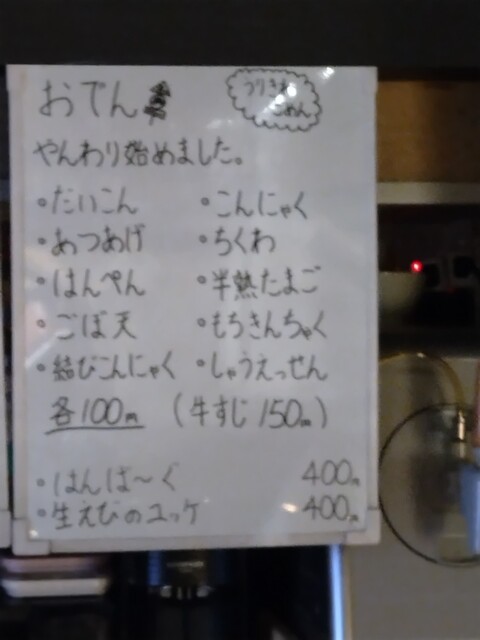 おでん
うりきれ
ごめん
やんわり始めました。
・だいこん ・こんにゃく
・あつあげ ・ちくわ
・はんぺん ・半熟たまご
・ごぼ天 ・もちきんちゃく
・結びこんにゃく ・しゃうえっせん
各100円 (牛すじ 150円)
・はんば〜ぐ 400円
・生えびのユッケ 400円